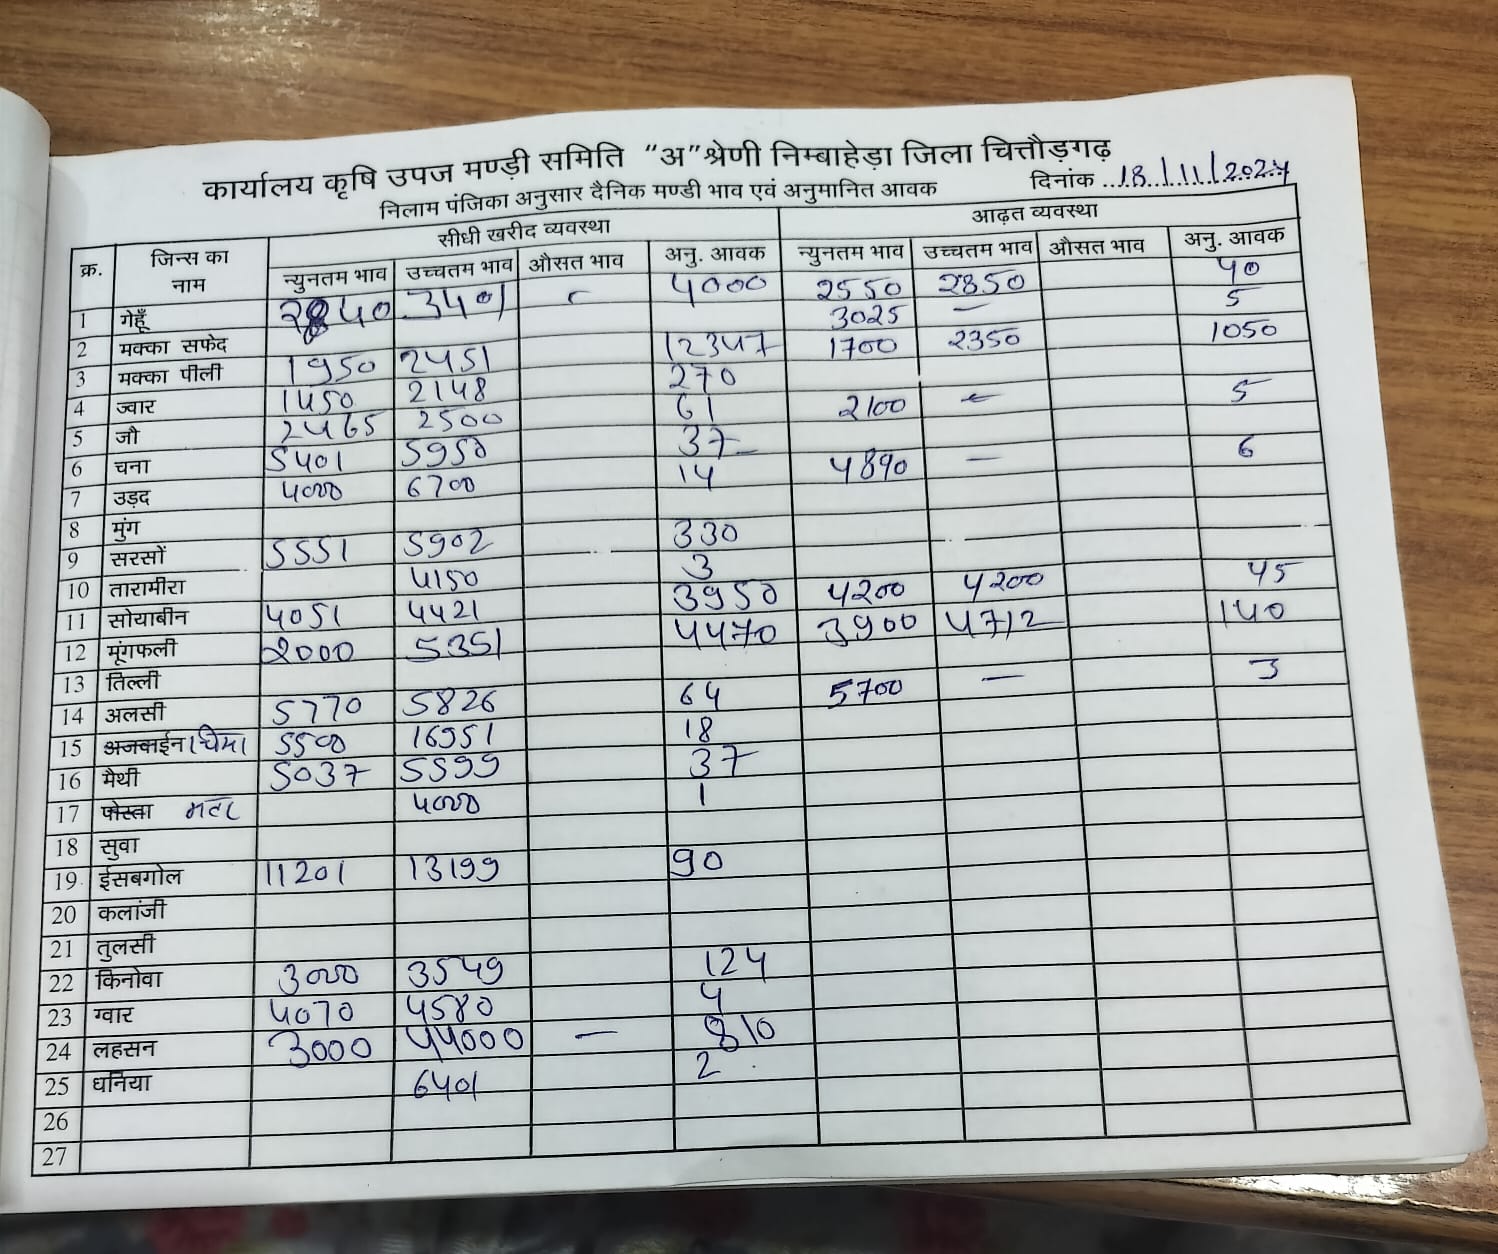 कार्यालय कृषि उपज मण्ड़ी समिति "अ" श्रेणी निम्बाहेड़ा जिला चित्तौड़गढ़
निलाम पंजिका अनुसार दैनिक मण्डी भाव एवं अनुमानित आवक दिनांक 18/11/2024
सीधी खरीद व्यवस्था आढ़त व्यवस्था
क्र. जिन्स का नाम न्युनतम भाव उच्चतम भाव औसत भाव अनु. आवक न्युनतम भाव उच्चतम भाव औसत भाव अनु. आवक
1 गेहूँ 3401 4000 2550 2850 40
2 मक्का सफेद 3025 — 5
3 मक्का पीली 1950 2451 12347 1700 2350 1050
4 ज्वार 1450 2148 270
5 जौ 2465 2500 61 2100 5
6 चना 5401 5950 37
7 उड़द 4000 6700 14 4890 — 6
8 मुंग
9 सरसों 5551 5902 330
10 तारामीरा 4150 3
11 सोयाबीन 4051 4421 3950 4200 4200 45
12 मूंगफली 2000 5351 4470 3900 4712 140
13 तिल्ली
14 अलसी 5770 5826 64 5700 — 3
15 अजवाईन 5500 16951 18
16 मैथी 5037 5599 37
17 पोस्ता मटर 4000 1
18 सुवा
19 ईसबगोल 11201 13199 90
20 कलांजी
21 तुलसी
22 किनोवा 3000 3549 124
23 ग्वार 4070 4580 4
24 लहसन 3000 44000 — 810
25 धनिया 6401 2
26
27